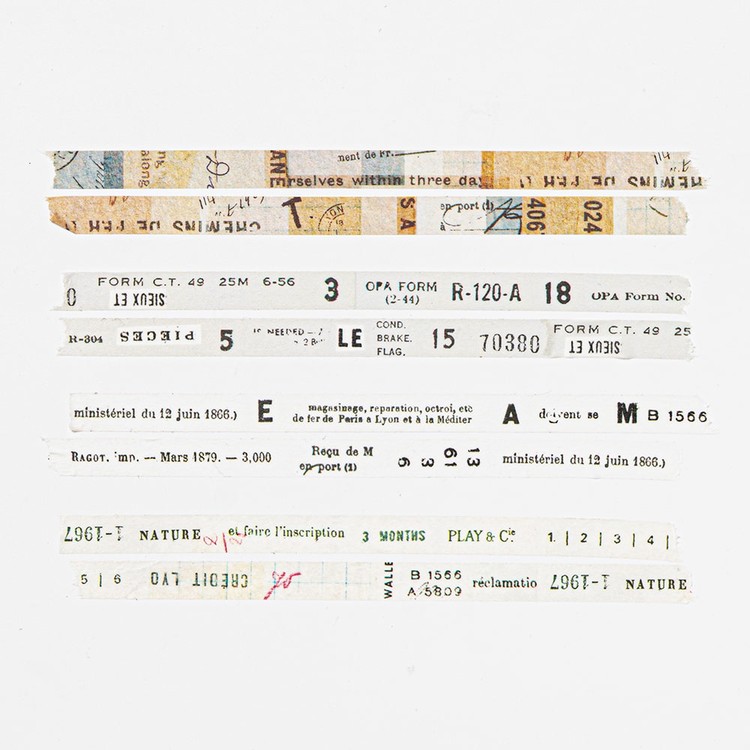 nent de Fr.
ANE rselves within three day CHEMINS DE FER
CHEMINS DE FER T. YON S A en port (1) 406 024
0 FORM C.T. 49 25M 6-56 SIEUX ET 3 OPA FORM (2-44) R-120-A 18 OPA Form No.
R-304 PIECES 5 IF NEEDED LE COND. BRAKE. FLAG. 15 70380 FORM C.T. 49 25 SIEUX ET
ministériel du 12 juin 1866.) E magasinage, reparation, octroi, etc
de fer de Paris a Lyon et à la Méditer A doivent se M B 1566
RAGOT. imp. — Mars 1879. — 3,000 Reçu de M
en port (1) 6 3 61 13 ministériel du 12 juin 1866.)
1-1967 NATURE et faire l'inscription 3 MONTHS PLAY & Cie 1. | 2 | 3 | 4 |
5 | 6 CRÉDIT LYO WALLE B 1566
A 5809 réclamatio 1-1967 NATURE